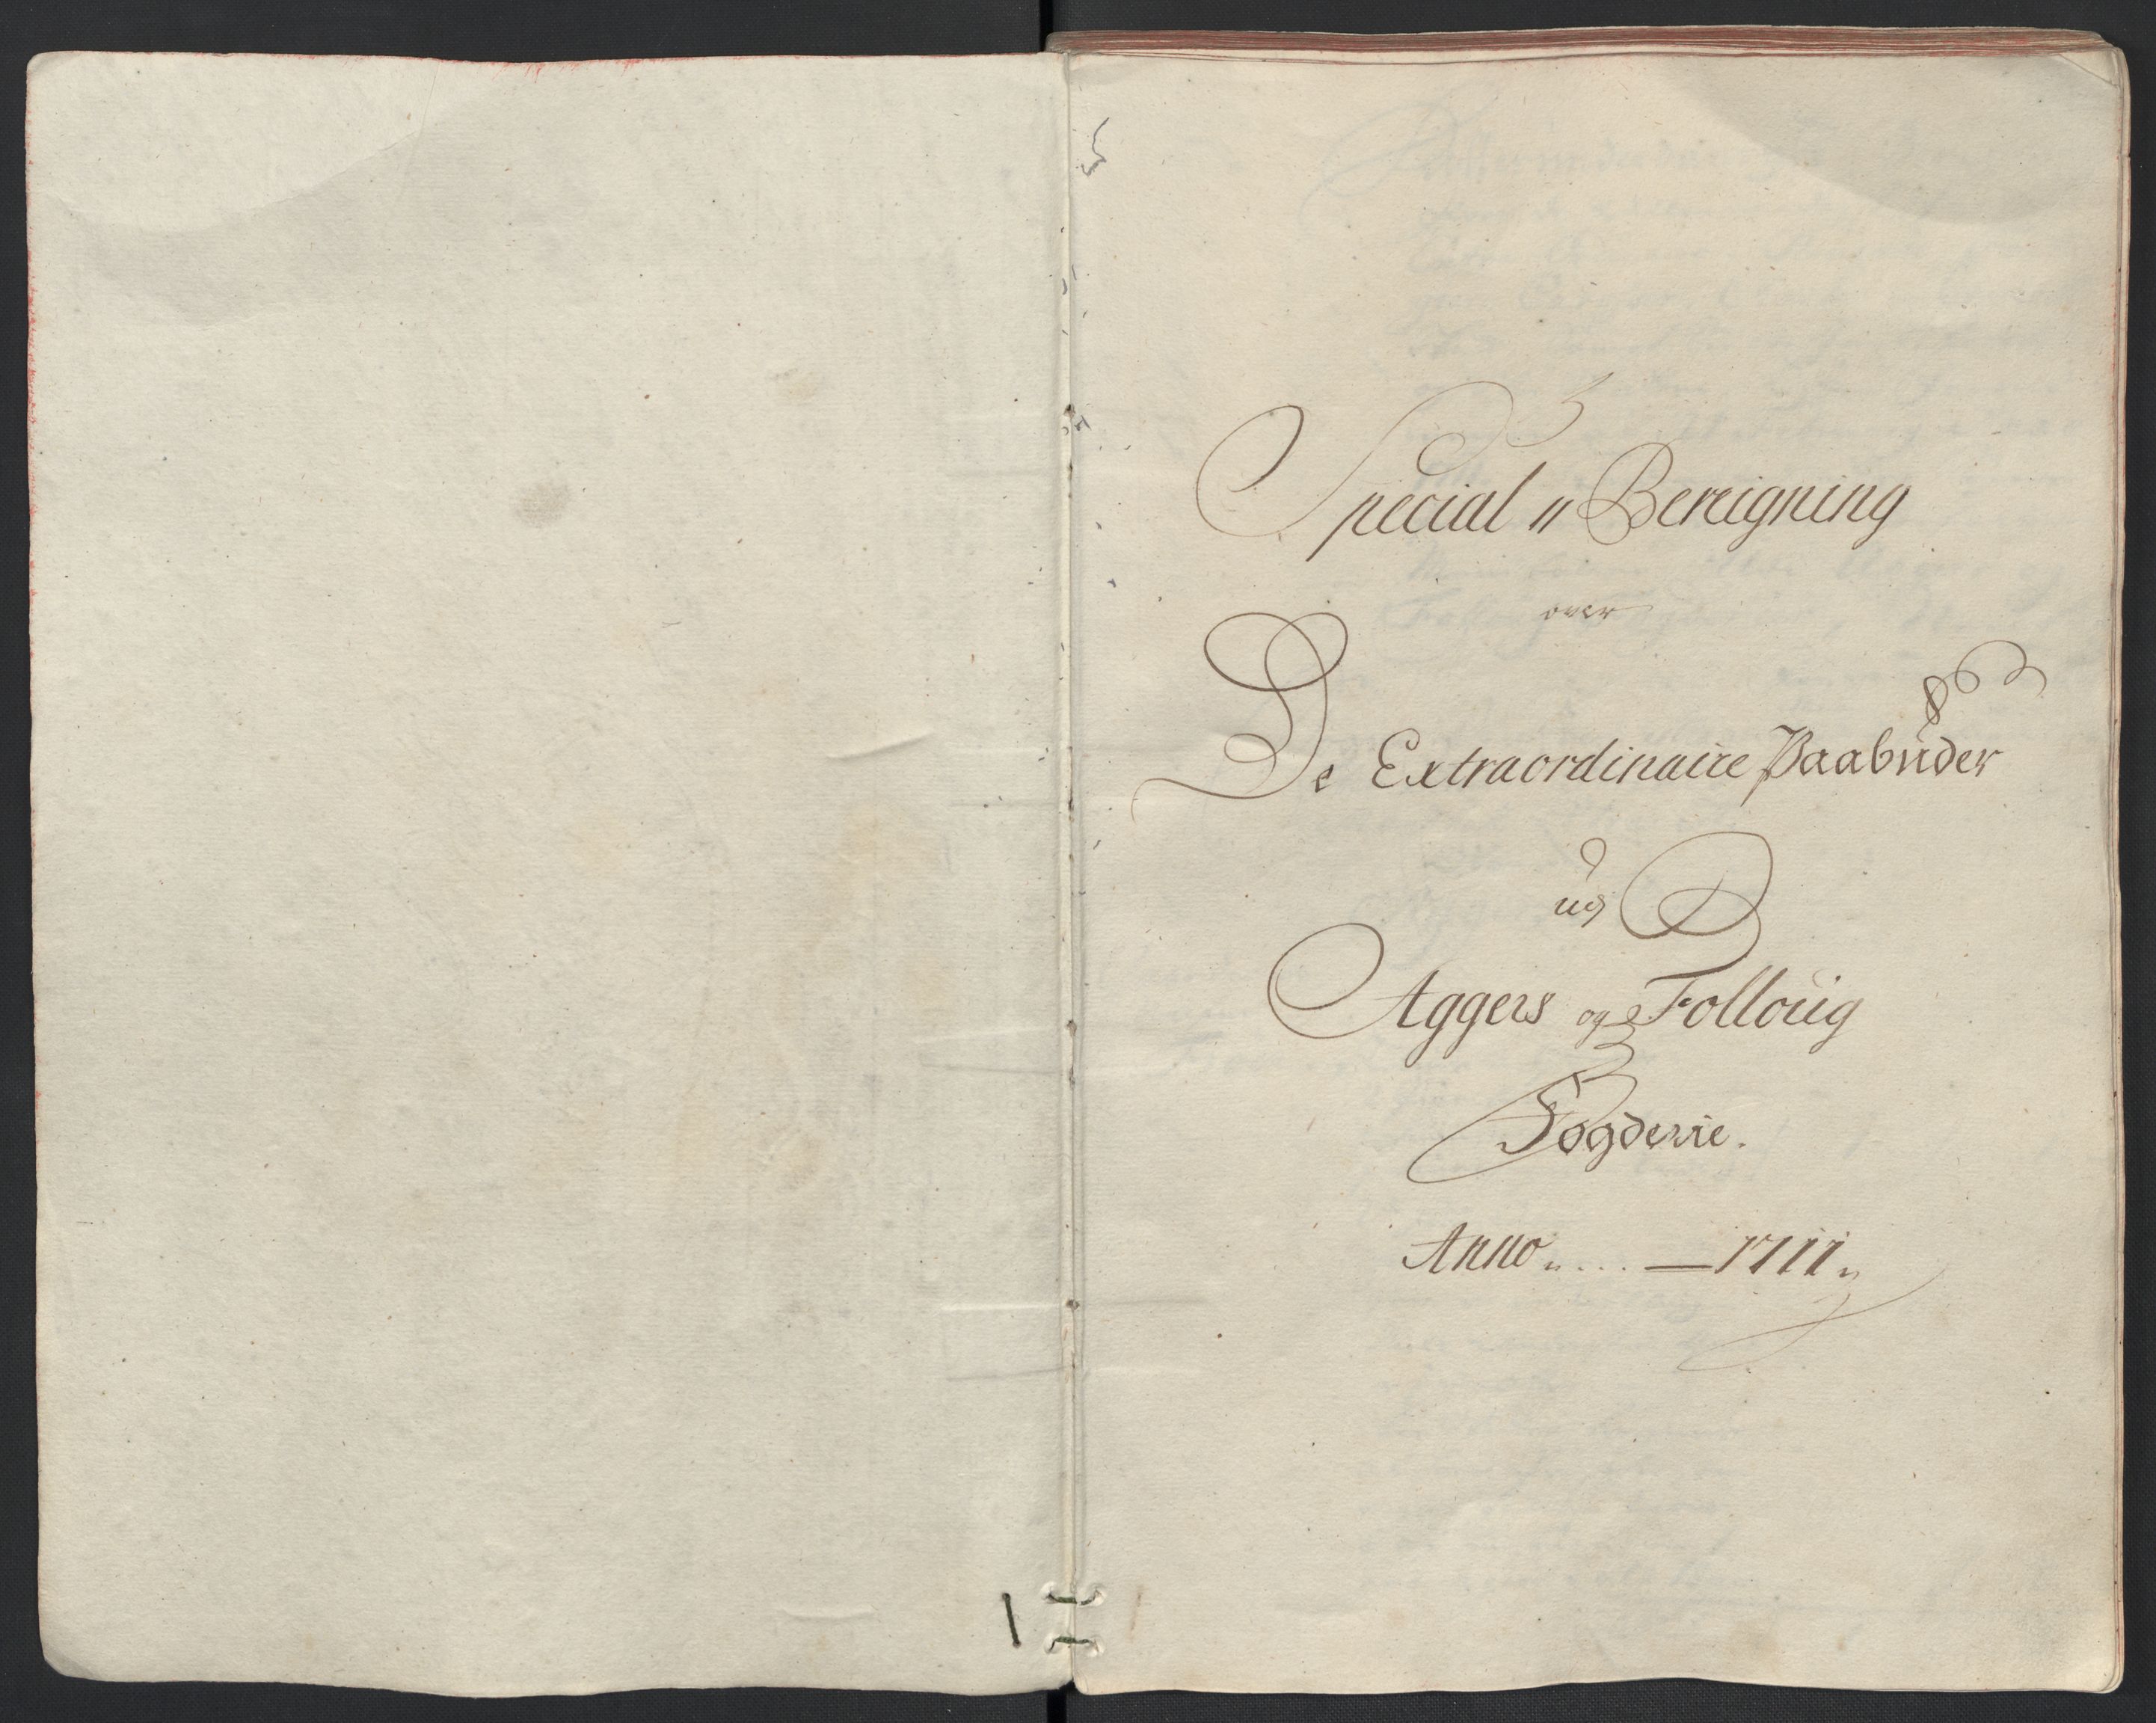 Special〃Bereigning
over
De Extraordinaire Paabuder
Aggers og Folloüg
Fogderie.
Anno 1711